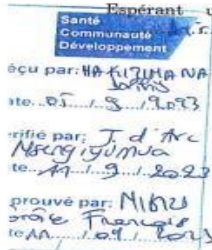 Espérant u
Santé
Communauté
Développement
éçu par: HAKIZIMANA
ate. 05 / 9 / 2023
érifié par: J. d'Arc
te. 11 / 9 / 2023
prouvé par: NIBIZI
Français
te 11 / 09 / 2023